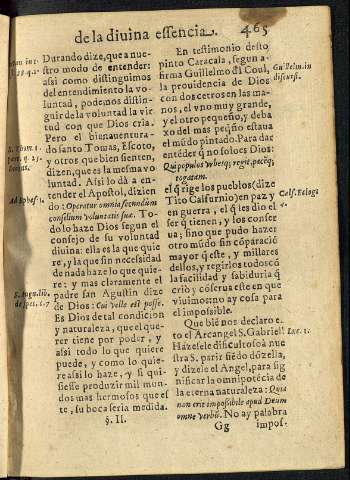 de la diuina essencia.
465
Durando dize, que a nue-
stro modo de entender:
assi como distinguimos
del entendimiento la vo-
luntad, podemos distin-
guir de la voluntad la vir
tud con que Dios cria.
Pero el bienauentura-
do santo Tomas, Escoto,
y otros que bien sienten,
dizen, que es la mesma vo
luntad. Assi lo dà a en-
tender el Apostol, dizien
do: Operatur omnia secundum
consilium voluntatis suæ. To-
do lo haze Dios segun el
consejo de su voluntad
diuina: ella es la que quie
re, y la que sin necessidad
de nada haze lo que quie-
re: y mas claramente el
padre san Agustin dize
de Dios: Cui velle est posse.
Es Dios de tal condicion
y naturaleza, que el que-
rer tiene por poder, y
assi todo lo que quiere
puede, y como lo quie-
re assi lo haze, y si qui-
siesse produzir mil mun-
dos mas hermosos que es
te, su boca seria medida.
§. II.
S. Thom. 1.
Ad Ephes. 1.
S. Augu. lib.
En testimonio desto
pinto Caracala, segun a-
firma Guillelmo d'l Coul,
la prouidencia de Dios
con dos cetros en las ma-
nos, el vno muy grande,
y el otro pequeño, y deba
xo del mas peq̃ño estaua
el mũdo pintado. Para dar
entẽder q̃ no solo es Dios:
Qui populos vrbesq; regit, pacẽq;
rogatam.
el q̃ rige los pueblos (dize
Tito Calfurnio) en paz y
en guerra, el q̃ les dio el
ser q̃ tienen, y los conser
ua; sino que pudo hazer
otro mũdo sin cõparaciõ
mayor q̃ este, y millares
dellos, y regirlos todos cõ
la facilidad y sabiduria q̃
crio y cõserua este en que
viuimos: no ay cosa para
el impossible.
Que biẽ nos declaro e-
sto el Arcangel S. Gabriel!
Hazele dificultoso à nue
stra S. parir siẽdo dõzella,
y dizele el Angel, para sig
nificar la omnipotẽcia de
la eterna naturaleza: Quia
non erit impossibile apud Deum
omne verbũ. No ay palabra
Gg impos-
Guillelm. in
discurs.
Calf. Eclog.
4.
Luc. 1.